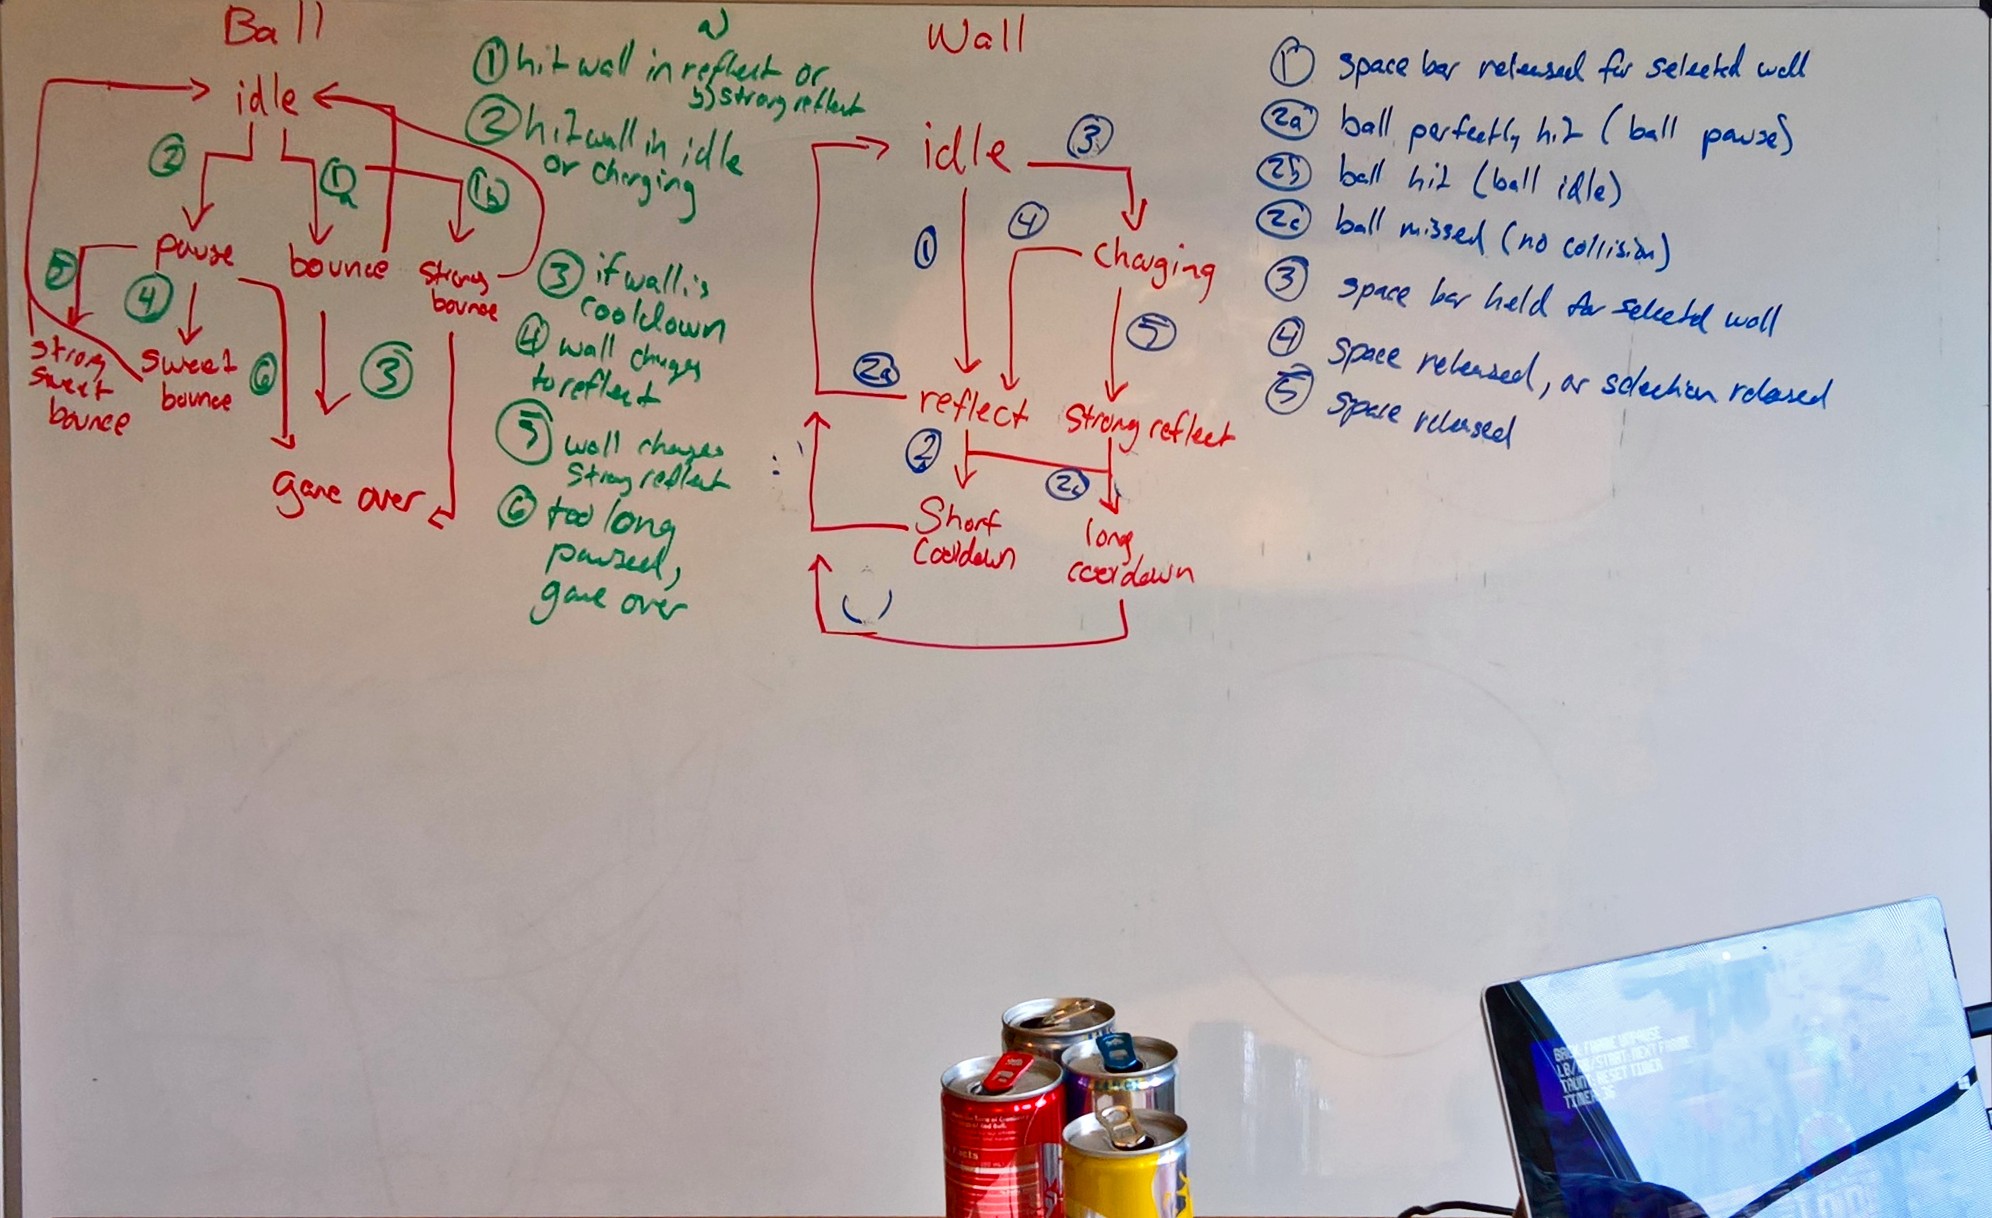 Ball
idle
2
1a
1b
pause
bounce
strong
bounce
5
4
6
3
strong
sweet
bounce
sweet
bounce
game over
a)
1 hit wall in reflect or
b) strong reflect
2 hit wall in idle
or charging
3 if wall is
cooldown
4 wall changes
to reflect
5 wall changes
strong reflect
6 too long
paused,
game over
Wall
idle
3
1
4
charging
5
2a
reflect
strong reflect
2
2c
Short
Cooldown
long
cooldown
1 space bar released for selected wall
2a ball perfectly hit (ball pause)
2b ball hit (ball idle)
2c ball missed (no collision)
3 space bar held for selected wall
4 space released, or selection released
5 space released
BACK FRAME UNPAUSE
START: NEXT FRAME
RESET TIMER
TIMER: 36